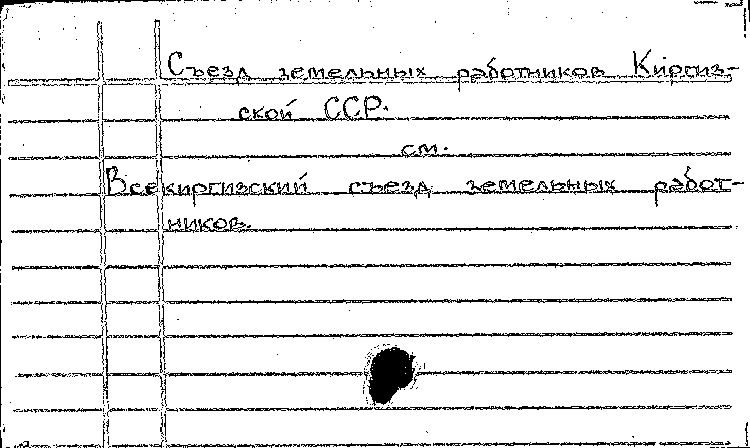 Съезд земельных работников Киргиз-
ской ССР.
см.
Всекиргизский съезд земельных работ-
ников.